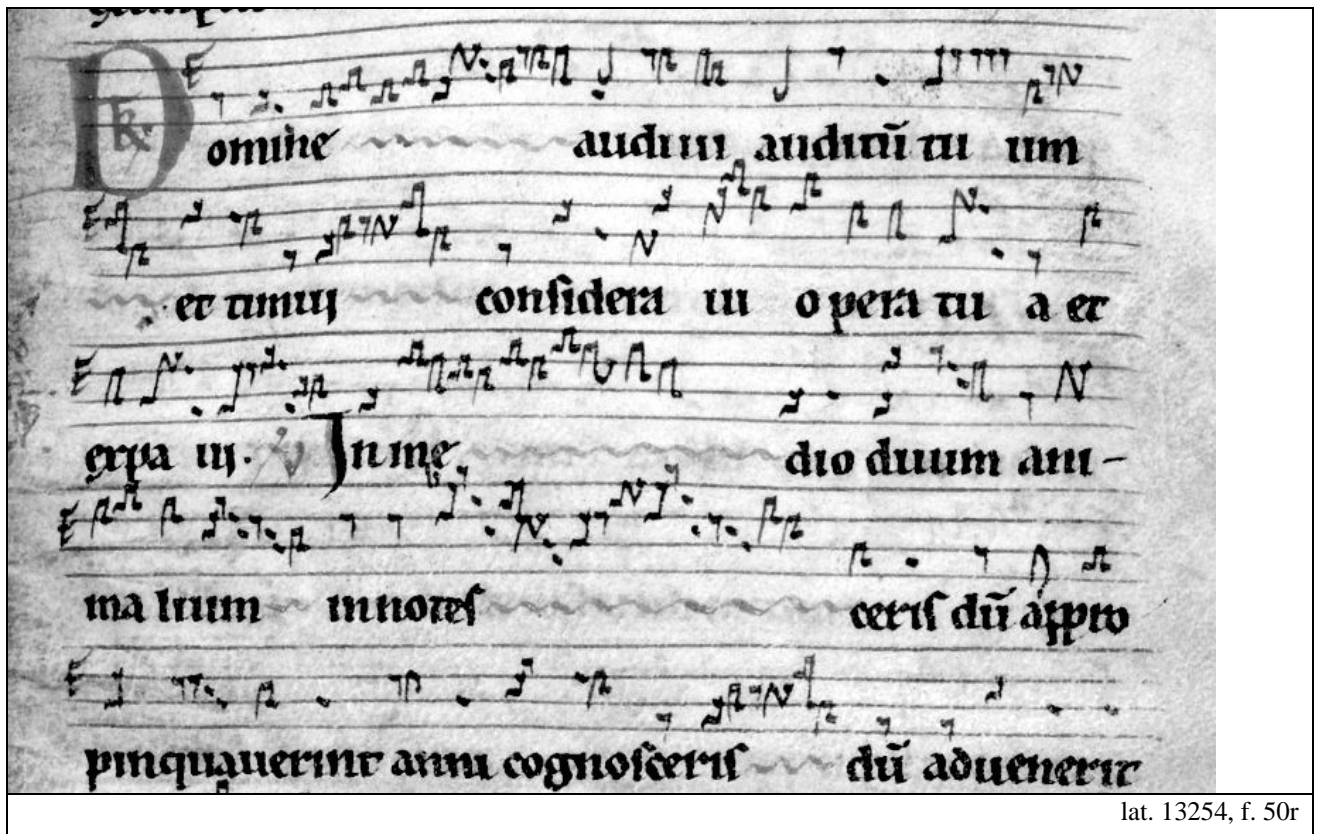 Domine audiui auditū tu um
et timuij considera ui opera tu a et
expa uij. In me dio duum ani-
ma lium innotes ceris dū appro
pinquauerint anni cognosceris dū aduenerit
lat. 13254, f. 50r